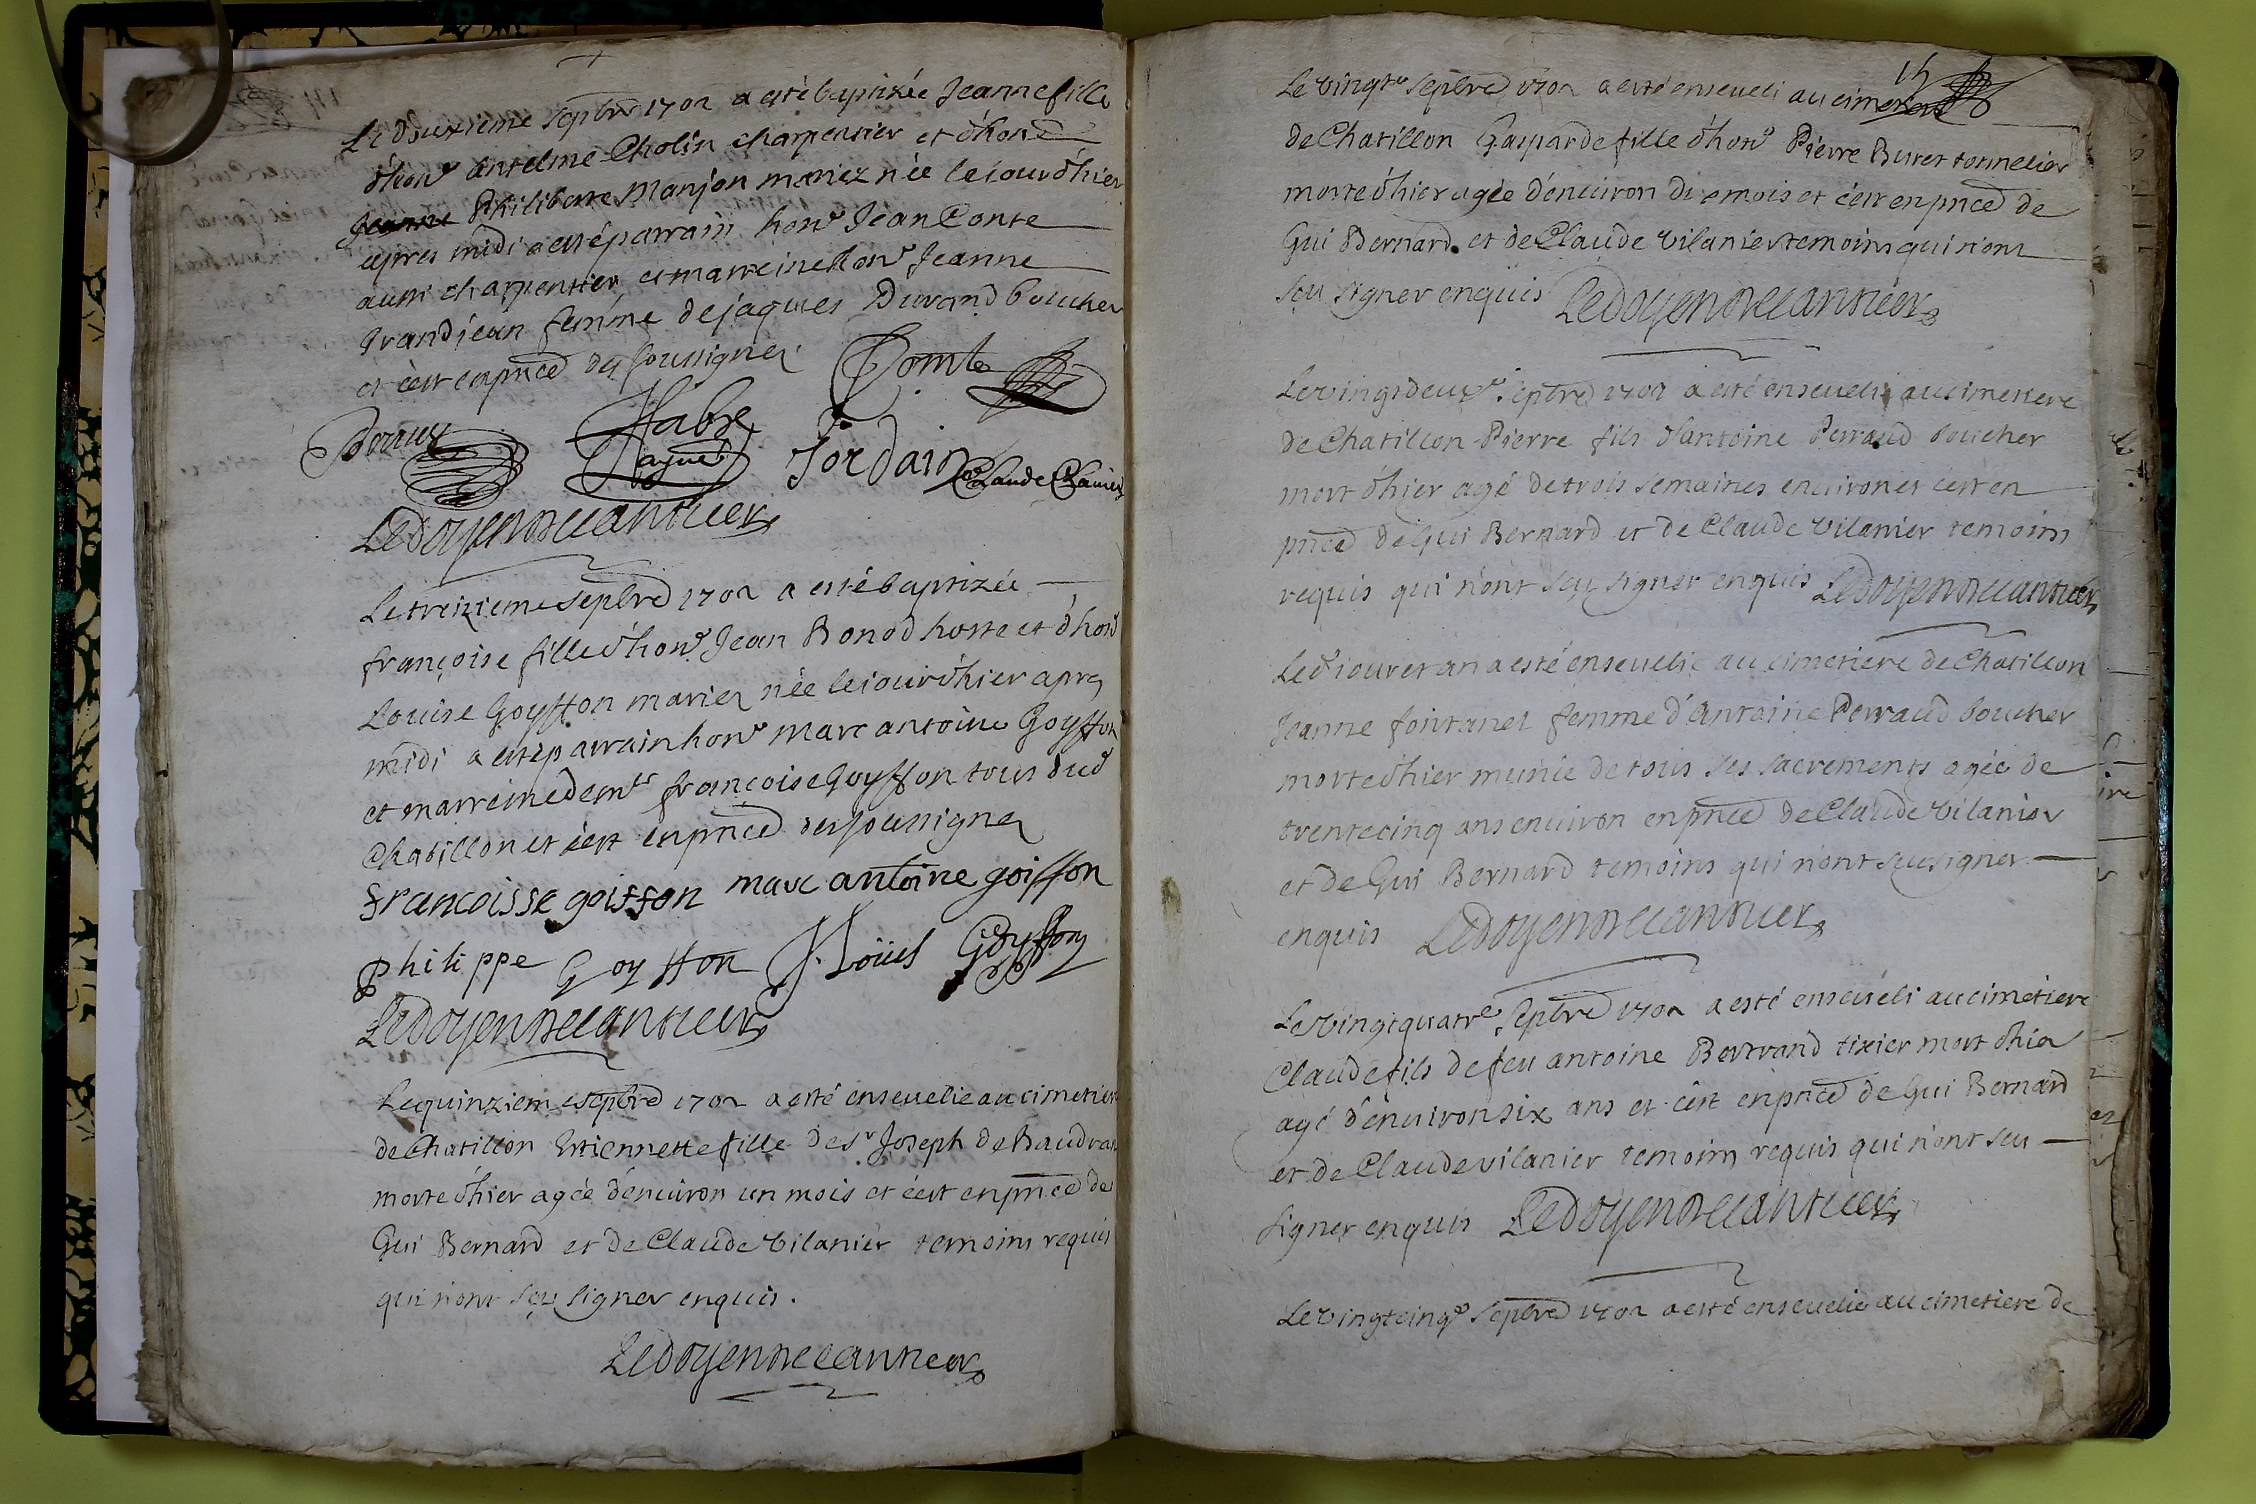 Le deuxieme septbre 1702 a esté baptizée Jeanne fille
d'hon^e Antelme Cholin charpentier et d'hon^e
Jeanne Philiberte Monjon mariez née le jour d'hier
apres midi a esté parrain hon^e Jean Conte
aussi charpentier et marreine hon^e Jeanne
Grandjean femme de jaques Durand boucher
et c'est en pnce des soussignez Comte
Fabre
Jordain Claude Clavier
Ledoyen Decantieer
Le treizieme septbre 1702 a esté baptizée
françoise fille d'hon^e Jean Bonod hoste et d'hon^e
Louise Goyffon mariez née le jour d'hier apres
midi a esté parrain hon^e marc antoine Goyffon
et marreine dem^le francoise Goyffon tous dud
Chatillon et c'est en pnce des soussignez
francoisse goiffon marc antoine goiffon
philippe Goyffon J. Loüis Goyffon
Ledoyen Decantieer
Le quinzieme septbre 1702 a esté ensevelie au cimetiere
de Chatillon Estiennette fille de s^r Joseph de Baudran
morte d'hier agée d'environ un mois et c'est en pnce de
Gui Bernard et de Claude Vilanier temoins requis
qui n'ont sçu signer enquis.
Ledoyen Decantieer
15
Le vingt^e septbre 1702 a esté enseveli au cimetiere
de Chatillon Gasparde fille d'hon^e Pierre Buret tonnelier
morte d'hier agée d'environ dix mois et c'est en pnce de
Gui Bernard et de Claude Vilanier temoins qui n'ont
sçu signer enquis Ledoyen Decantieer
Le vingtdeux^e septbre 1702 a esté enseveli au cimetiere
de Chatillon Pierre fils d'antoine Perraud boucher
mort d'hier agé de trois semaines environ et c'est en
pnce de Gui Bernard et de Claude Vilanier temoins
requis qui n'ont sçu signer enquis Ledoyen Decantieer
Led jour et an a esté ensevelie au cimetiere de Chatillon
Jeanne fontanel femme d'Antoine Perraud boucher
morte d'hier munie de tous ses sacrements agée de
trentecinq ans environ en pnce de Claude Vilanier
et de Gui Bernard temoins qui n'ont sçu signer
enquis Ledoyen Decantieer
Le vingtquatre septbre 1702 a esté enseveli au cimetiere
Claude fils de feu antoine Bertrand tixier mort d'hier
agé d'environ six ans et c'est en pnce de Gui Bernard
et de Claude vilanier temoins requis qui n'ont sçu
signer enquis Ledoyen Decantieer
Le vingtcinq^e septbre 1702 a esté ensevelie au cimetiere de